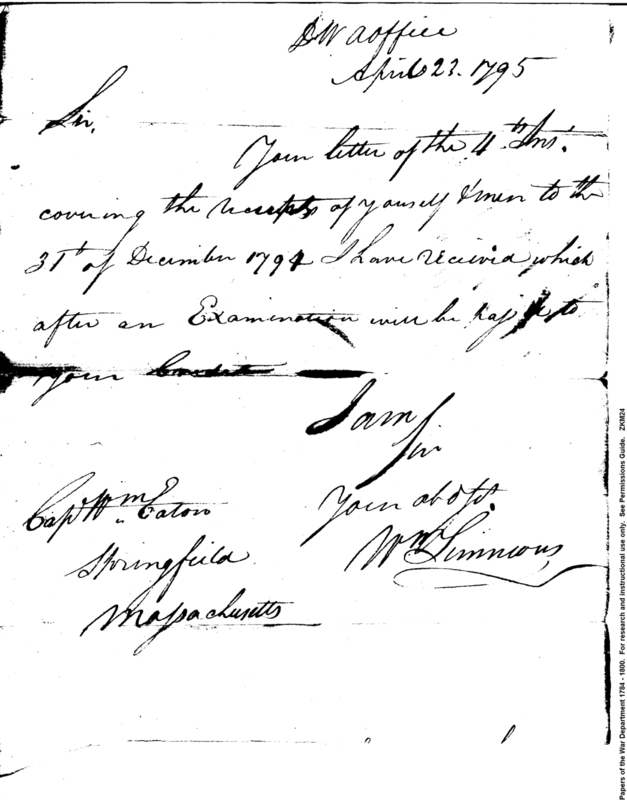 DW a office
April 23. 1795
Sir,
Your letter of the 4th Ins.
covering the receipts of yourself & men to the
31st of December 1794 I have received which
after an Examination will be to
your Credit
I am
Sir
Your obd st.
Wm Simmons
Capt Wm Eaton
Springfield
Massachusetts
Papers of the War Department 1784 - 1800. For research and instructional use only. See Permissions Guide. ZKM24